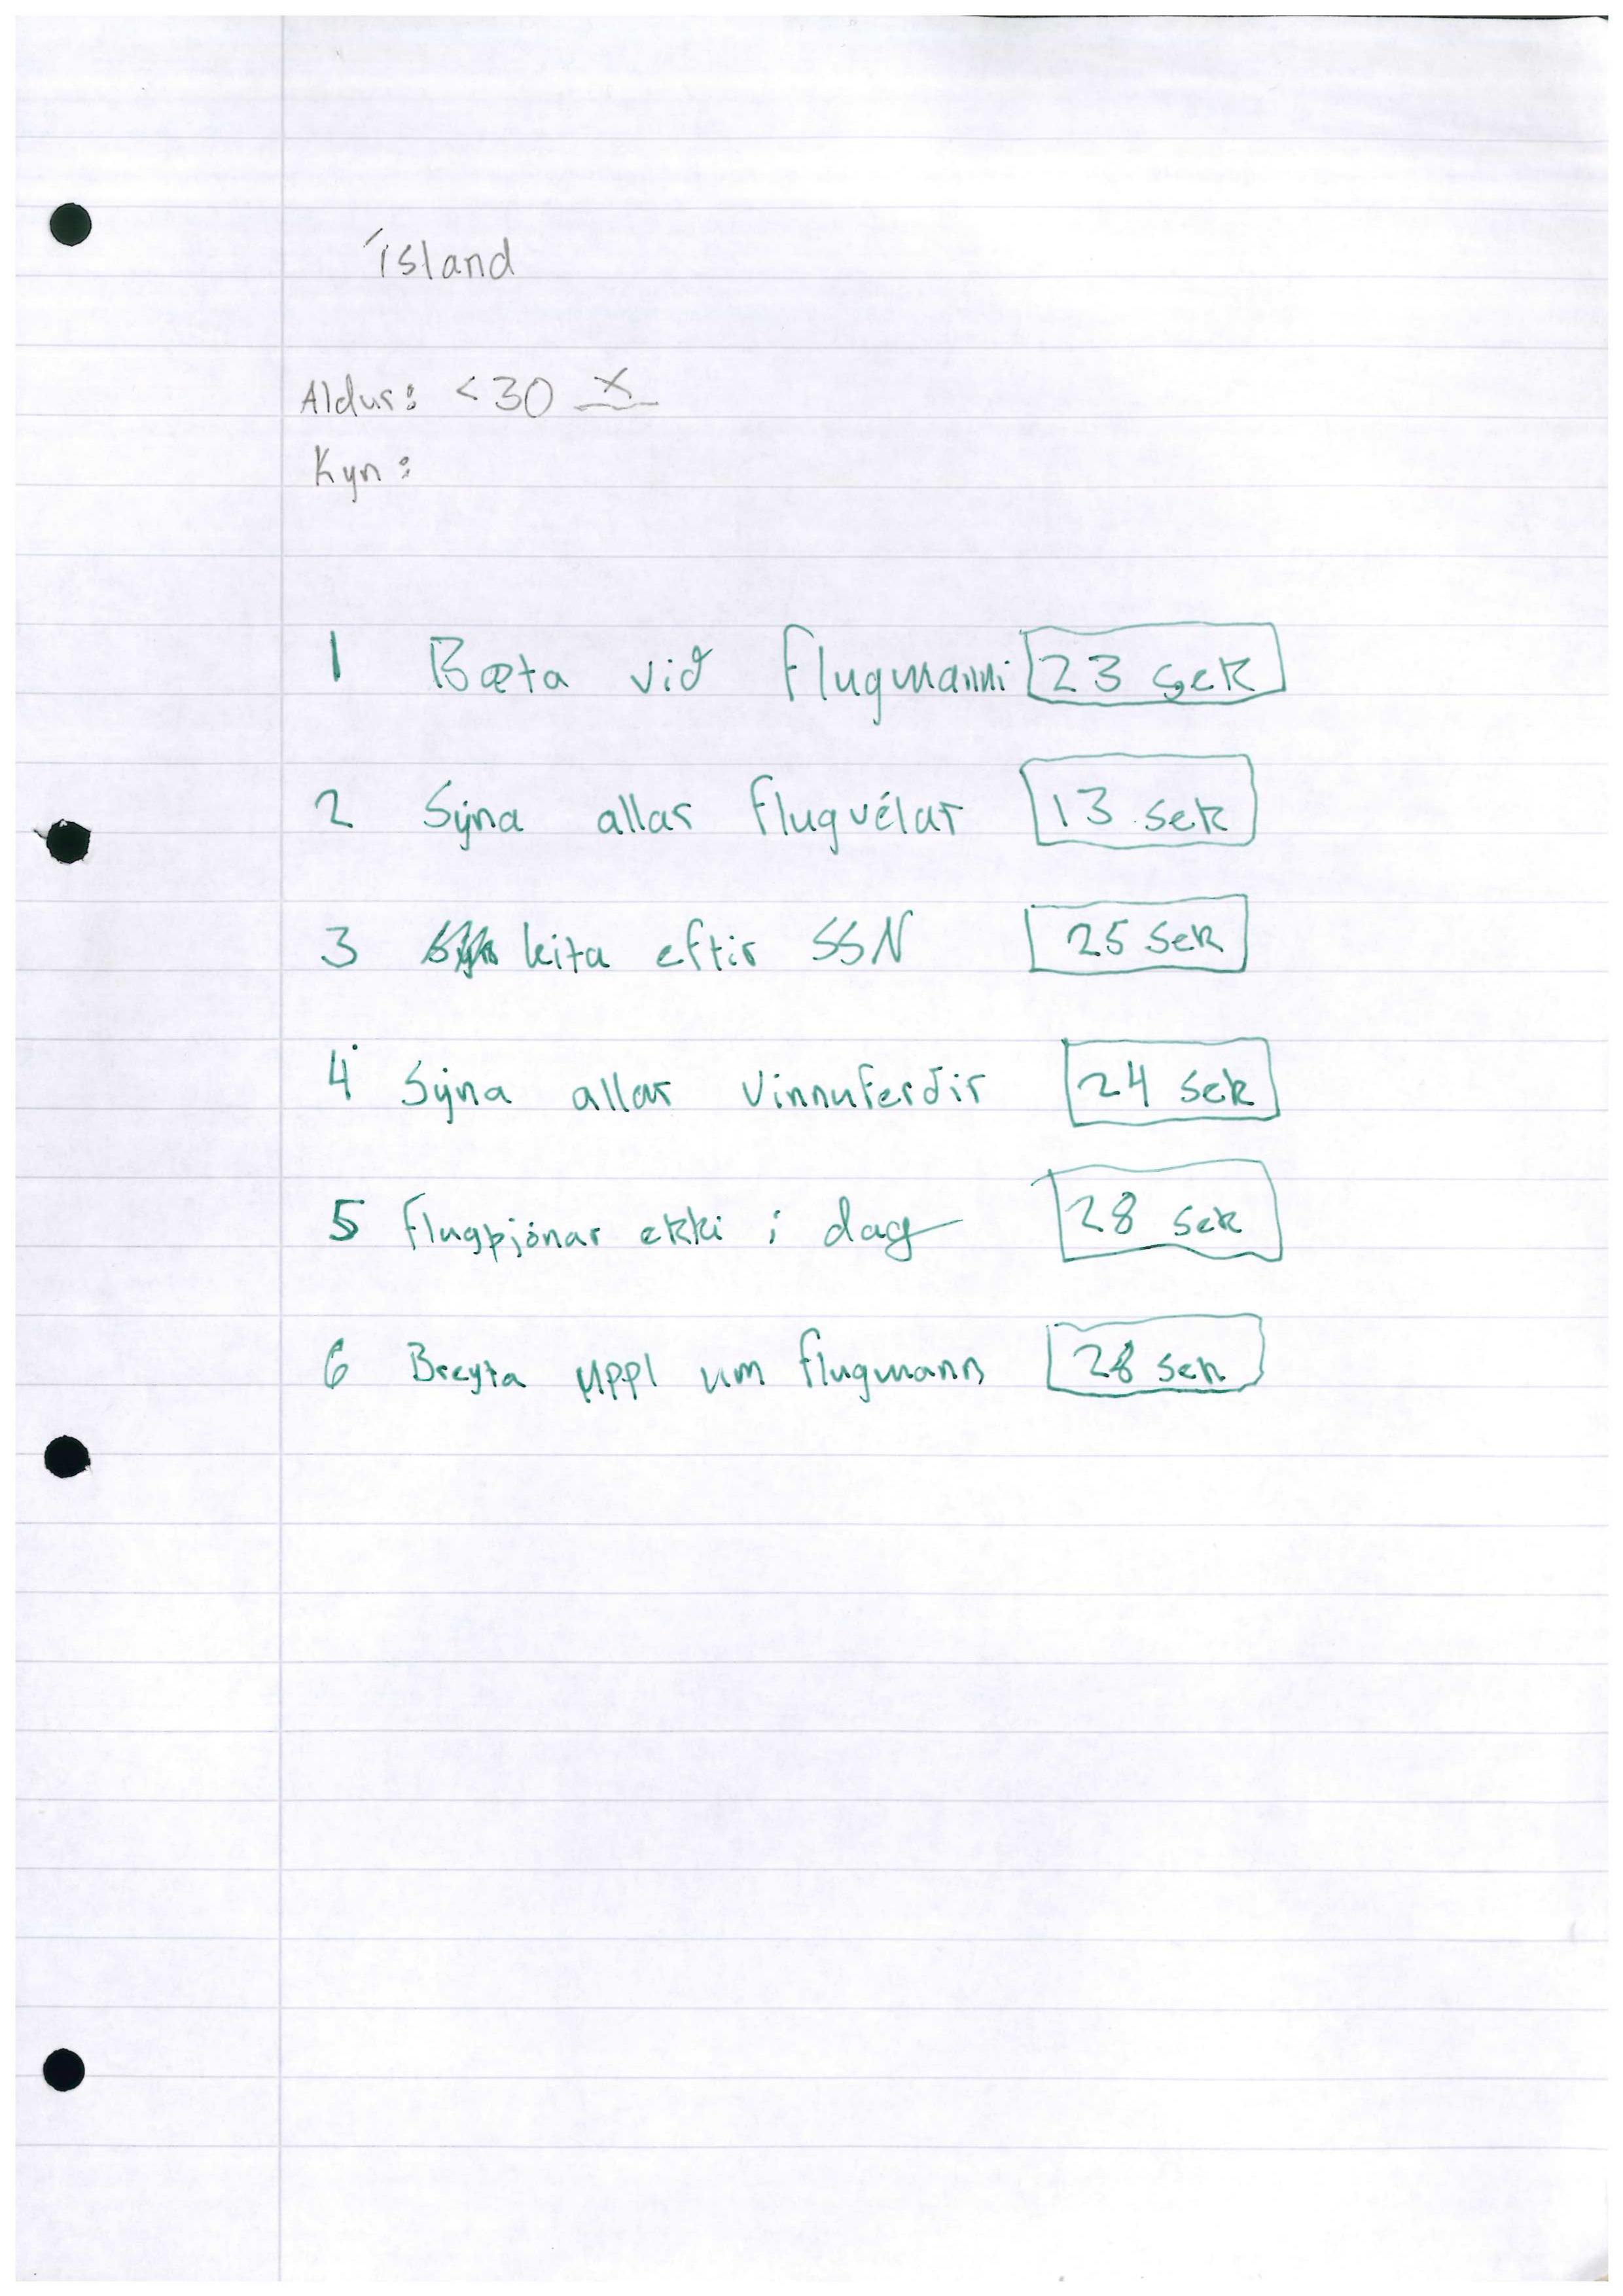 Ísland
Aldur: <30 X
Kyn:
1 Bæta við flugmanni 23 sek
2 Sýna allar flugvélar 13 sek
3 leita eftir SSN 25 sek
4 Sýna allar vinnuferðir 24 sek
5 flugþjónar ekki í dag 28 sek
6 Breyta uppl um flugmann 28 sek